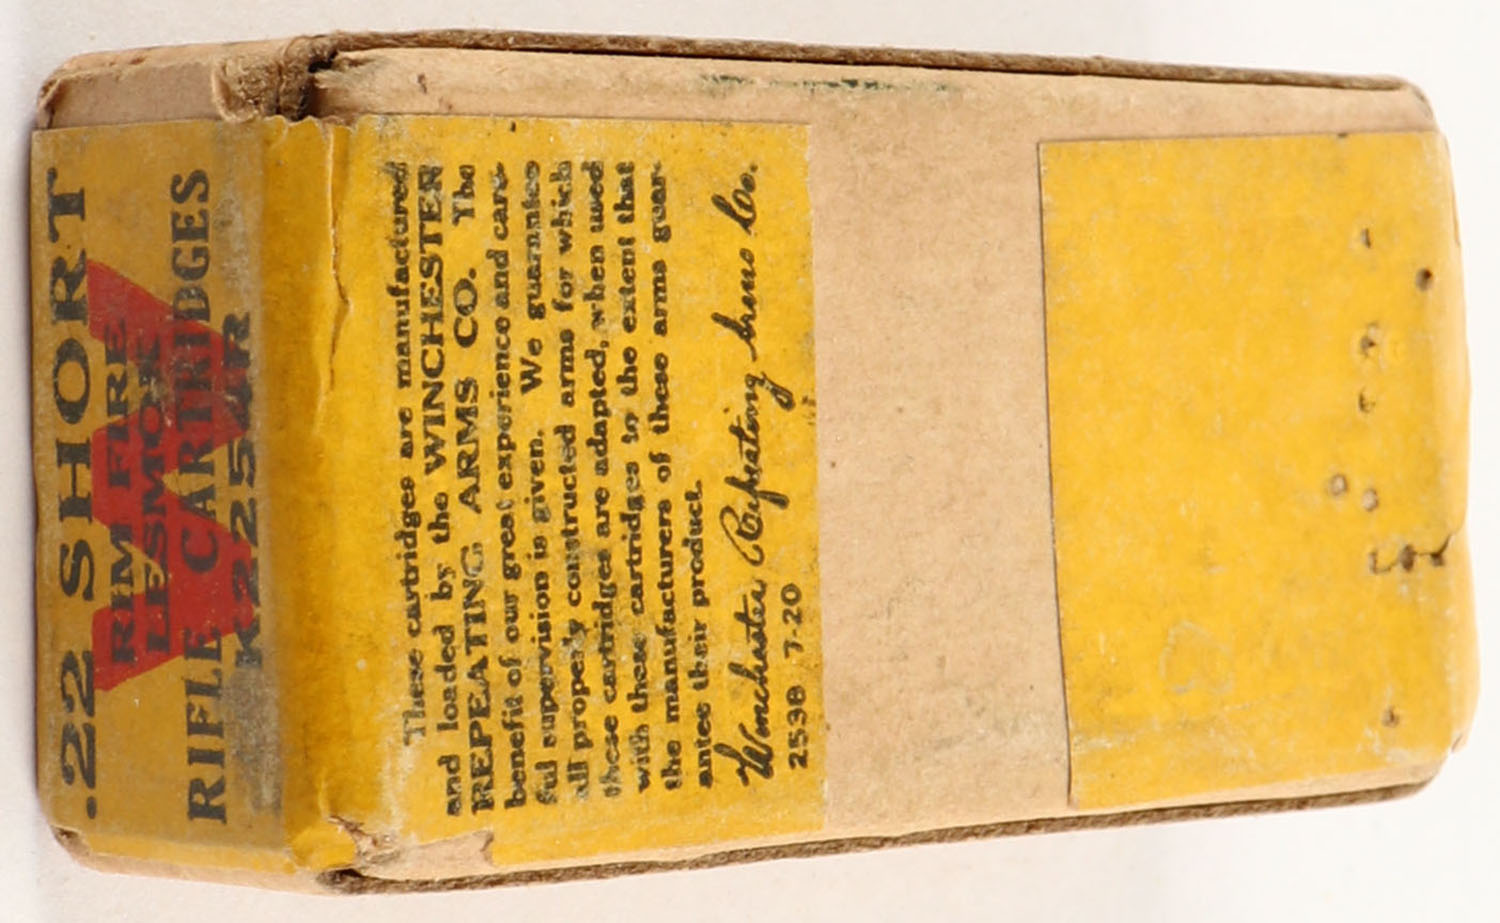 .22 SHORT
RIM FIRE
LESMOK
RIFLE CARTRIDGES
K2254R
W
These cartridges are manufactured
and loaded by the WINCHESTER
REPEATING ARMS CO. The
benefit of our great experience and care-
ful supervision is given. We guarantee
all properly constructed arms for which
these cartridges are adapted, when used
with these cartridges to the extent that
the manufacturers of these arms guar-
antee their product.
Winchester Repeating Arms Co.
2538 7-20